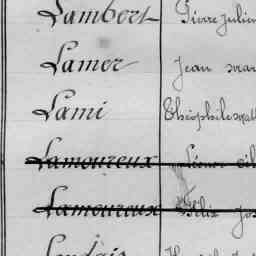 Lambert Pierre Julien
Lamer Jean
Lami Théophile
Lamoureux
Lamoureux Félix
Landais